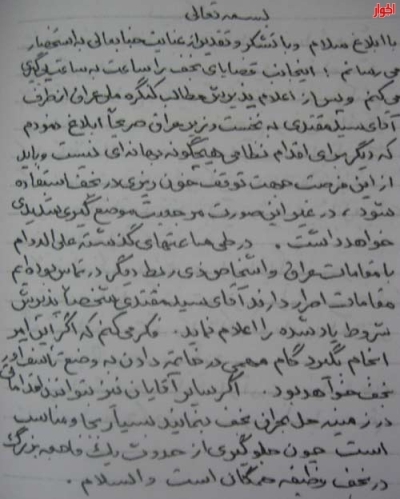 اخبار
بسمه تعالی
با ابلاغ سلام و با تشکر و تقدیر از عنایت جنابعالی به استحضار
می رسانم : اینجانب قضایای نجف را ساعت به ساعت پیگیری
می‌کنم و پس از اعلام پذیرش مطالب کنگره ملی عراق از طرف
آقای سید مقتدی به نخست وزیر عراق صریحاً ابلاغ نمودم
که دیگر برای اقدام نظامی هیچگونه بهانه‌ای نیست و باید
از این فرصت جهت توقف خون ریزی در نجف استفاده
شود ، در غیر این صورت مرجعیت موضع گیری شدیدی
خواهد داشت . در طی ساعتهای گذشته علی الدوام
با مقامات عراق و اشخاص ذی ربط دیگر در تماس بوده‌ام
مقامات اصرار دارند آقای سید مقتدی شخصاً پذیرش
شروط یاد شده را اعلام نماید . فکر می‌کنم که اگر این امر
انجام بگیرد گام مهمی در خاتمه دادن به وضع تأسف آور
نجف خواهد بود . اگر سایر آقایان نیز بتوانند اقداماتی
در زمینه حل بحران نجف بنمایند بسیار بجا و مناسب
است چون جلوگیری از حدوث یک فاجعه بزرگ
در نجف وظیفه همگان است والسلام .